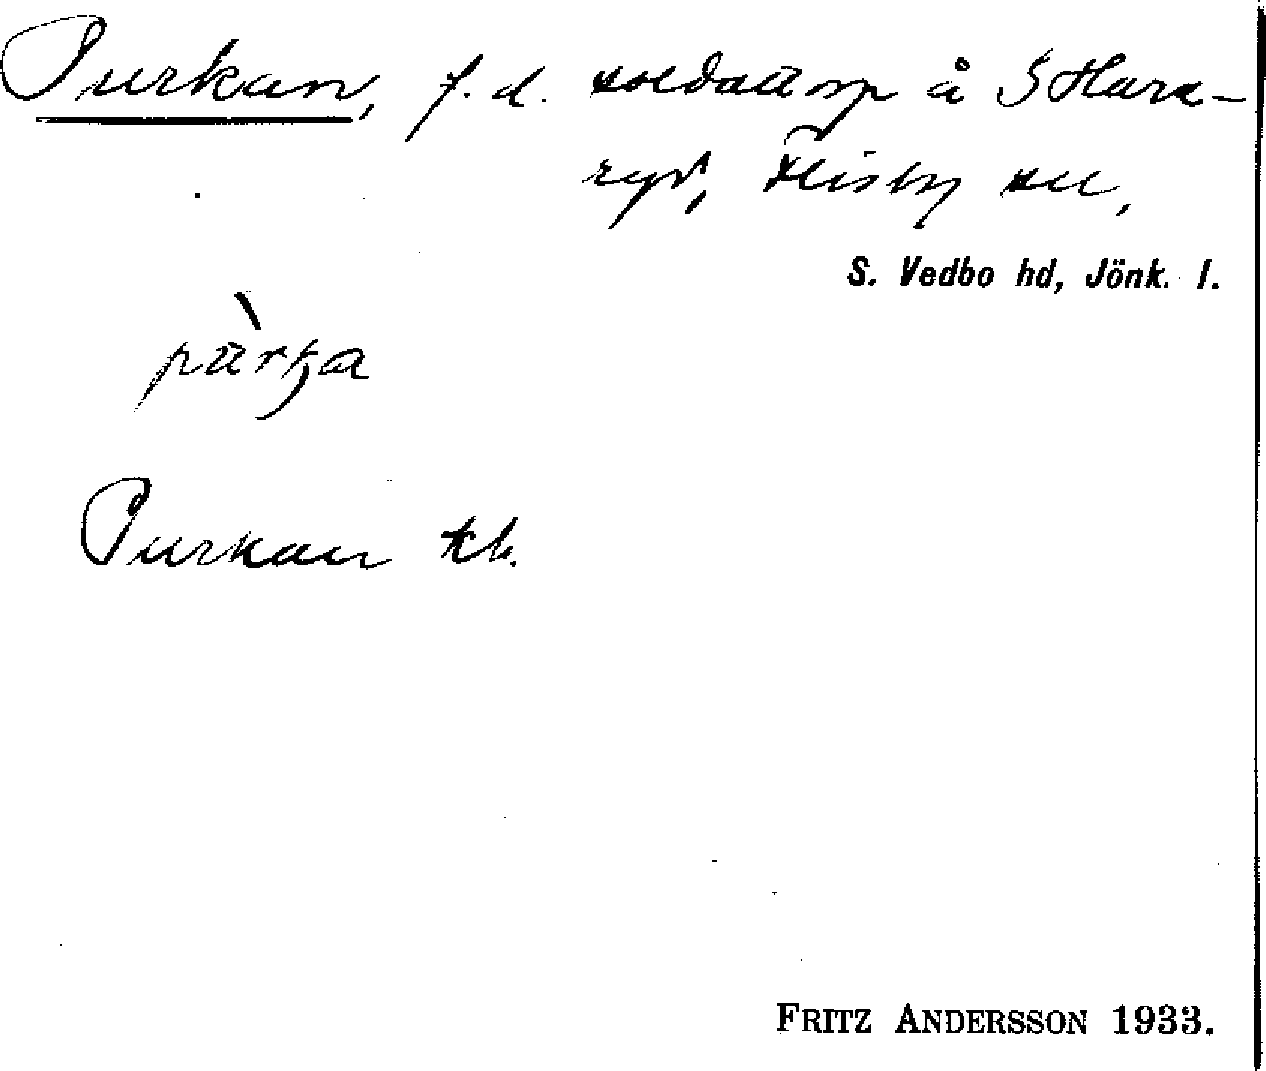 Purkan, f.d. soldattorp å S Hara-
ryd, Flisby sn,
S. Vedbo hd, Jönk. l.
Purkan
FRITZ ANDERSSON 1933.